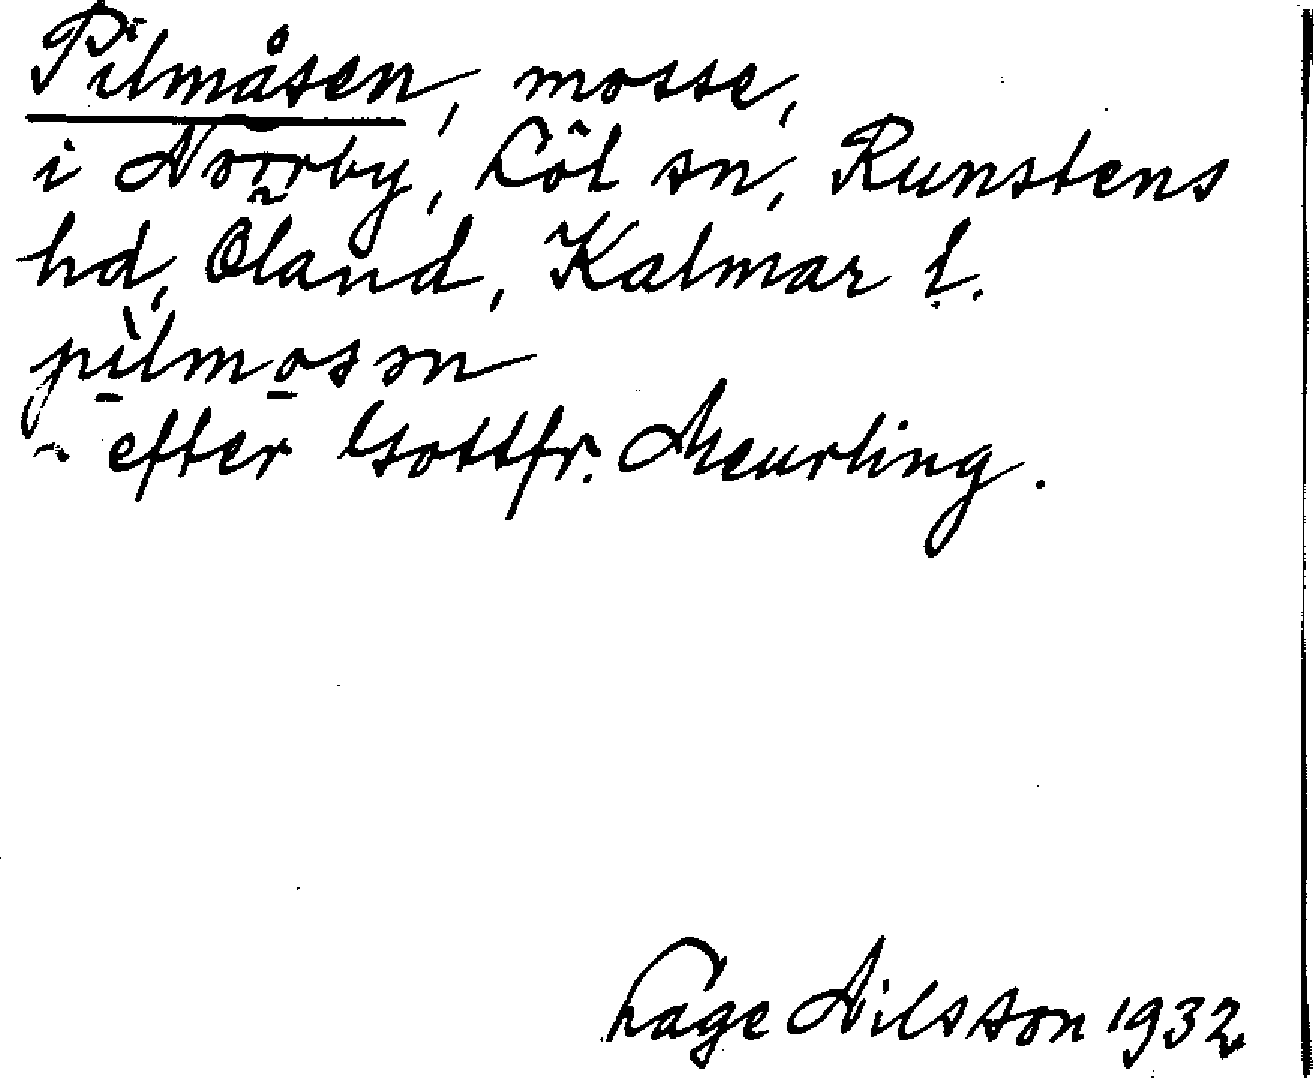 Pilmåsen, mosse,
i Norrby, Löt sn, Runstens
hd, Öland, Kalmar l.
pìlmosən
~ efter Gottfr. Meurling.
Lage Nilsson 1932